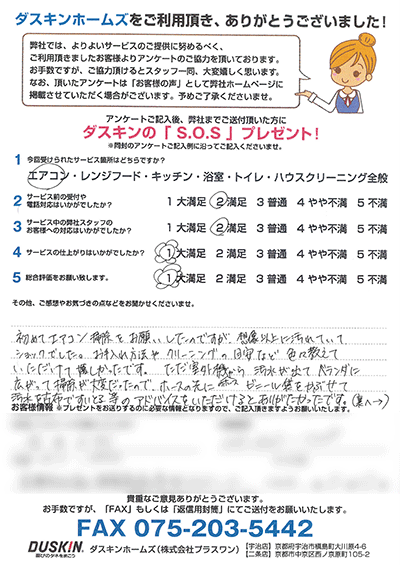 ダスキンホームズをご利用頂き、ありがとうございました！
弊社では、よりよいサービスのご提供に努めるべく、
ご利用頂きましたお客様よりアンケートのご協力を頂いております。
お手数ですが、ご協力頂けるとスタッフ一同、大変嬉しく思います。
なお、頂いたアンケートは「お客様の声」として弊社ホームページに
掲載させていただく場合がございます。予めご了承くださいませ。
アンケートご記入後、弊社までご送付頂いた方に
ダスキンの「S.O.S」プレゼント！
※同封のアンケートご記入例に沿ってご記入くださいませ。
1 今回受けられたサービス箇所はどちらですか？
エアコン・レンジフード・キッチン・浴室・トイレ・ハウスクリーニング全般
2 サービス前の受付や電話対応はいかがでしたか？ 1 大満足 2 満足 3 普通 4 やや不満 5 不満
3 サービス中の弊社スタッフのお客様への対応はいかがでしたか？ 1 大満足 2 満足 3 普通 4 やや不満 5 不満
4 サービスの仕上がりはいかがでしたか？ 1 大満足 2 満足 3 普通 4 やや不満 5 不満
5 総合評価をお願い致します。 1 大満足 2 満足 3 普通 4 やや不満 5 不満
その他、ご感想やお気づきの点などをお聞かせくださいませ。
初めてエアコン掃除をお願いしたのですが、想像以上に汚れていて、
ショックでした。お手入れ方法やクリーニングの目安など色々教えて
いただけて嬉しかったです。ただ室外機から汚水が出てベランダに
広がって掃除が大変だったので、ホースの先にビニール袋をかぶせて
汚水を出さずにすむ等のアドバイスをいただけるとありがたかったです。(裏へ→)
お客様情報 ※プレゼントをお送りするのに必要な情報となりますので、ご記入頂きますようお願いいたします。
貴重なご意見ありがとうございます。
お手数ですが、「FAX」もしくは「返信用封筒」にてご送付をお願いいたします。
FAX 075-203-5442
DUSKIN 喜びのタネをまこう
ダスキンホームズ（株式会社プラスワン）
【宇治店】京都府宇治市槇島町大川原4-6
【二条店】京都市中京区西ノ京原町105-2